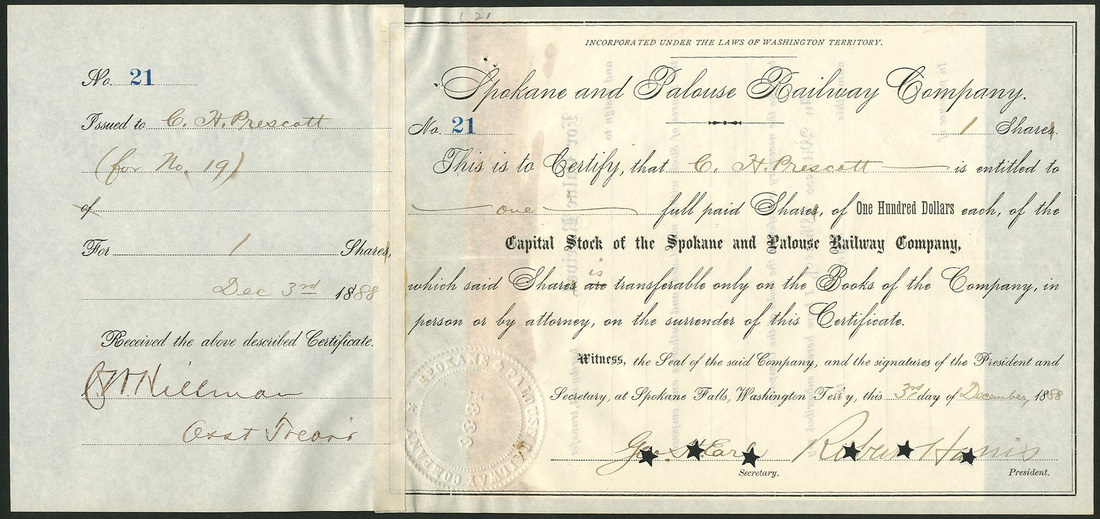 No. 21
Issued to C. H. Prescott
(for No. 19)
of
For 1 Shares,
Dec 3rd 1888
Received the above described Certificate.
Hillman
Asst Treas
INCORPORATED UNDER THE LAWS OF WASHINGTON TERRITORY.
Spokane and Palouse Railway Company.
No. 21 1 Shares
This is to Certify, that C. H. Prescott is entitled to
one full paid Shares, of One Hundred Dollars each, of the
Capital Stock of the Spokane and Palouse Railway Company,
is
which said Shares are transferable only on the Books of the Company, in
person or by attorney, on the surrender of this Certificate.
Witness, the Seal of the said Company, and the signatures of the President and
Secretary, at Spokane Falls, Washington Terr'y, this 3rd day of December, 1888
Geo. H. Earl Robert Harris
Secretary. President.
SPOKANE & PALOUSE RAILWAY COMPANY